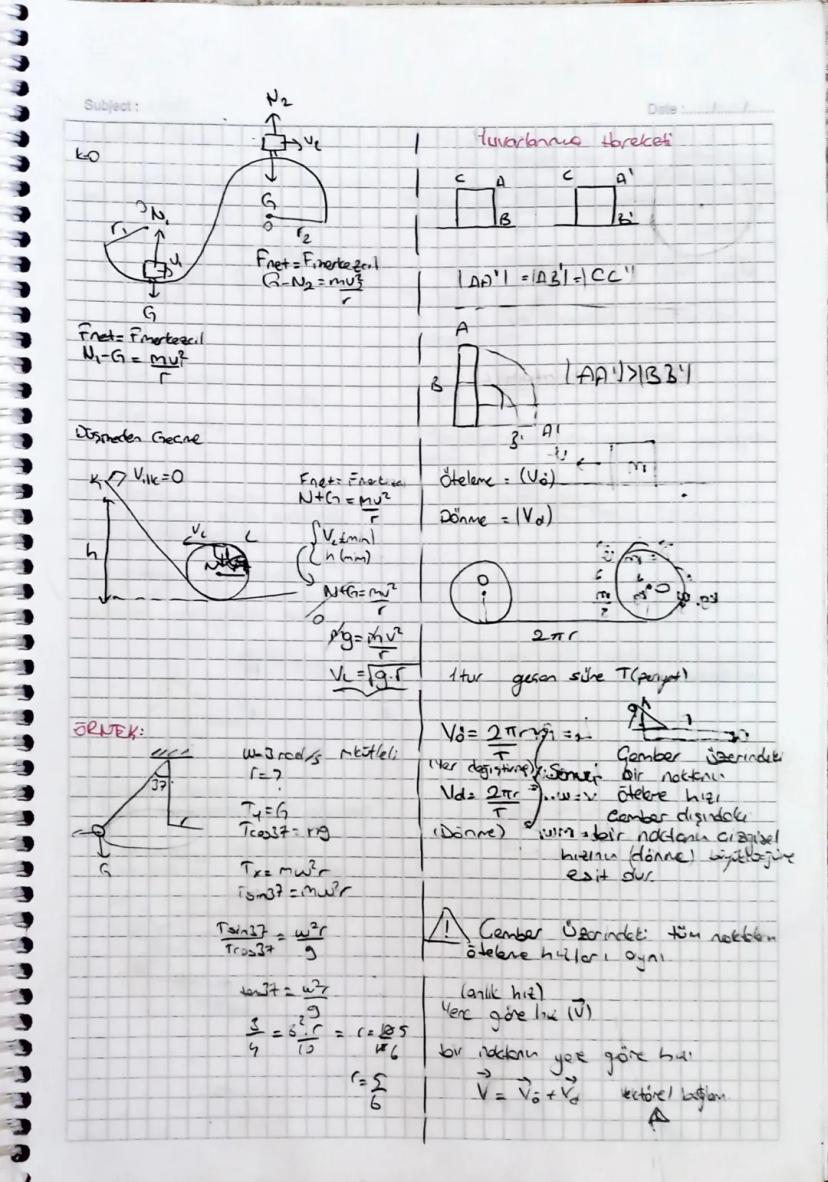 Subject :
Date :
k=0
N2
VL
G
O
r2
Fnet = Fmerkezcil
G-N2 = mv²
r
r1
N1
V1
G
Fnet = Fmerkezcil
N1-G = mv²
r
Düşmeden Geçme
K
Vilk=0
h
VL
L
N+G = mv²
r
VL(min)
h(min)
N+G = mv²
r
O
mg = mv²
r
VL = √g.r
ÖRNEK:
37
r
G
w=3 rad/s
r=?
Ty=G
Tcos37 = mg
Tx = mw²r
Tsin37 = mw²r
Tsin37 = w²r
Tcos37 g
tan37 = w²r
g
3
4
10
r = 5
6
Yuvarlanma Hareketi
C A C A'
B B'
A
B
|AA'|>|BB'|
B' A'
Öteleme = (Vö)
Dönme = (Vd)
O
2πr
1 tur geçen süre T(periyot)
Vö = 2πr
T
(Yer değiştirme)
Vd = 2πr
T
(Dönme)
Çember üzerindeki
bir noktanın
öteleme hızı
çember dışındaki
bir noktanın çizgisel
hızının (dönme) büyüklüğüne
eşit dur.
! Çember üzerindeki tüm noktaların
öteleme hızları aynı
(anlık hız)
Yere göre hız (V)
bir noktanın yere göre hızı
V = Vö + Vd vektörel